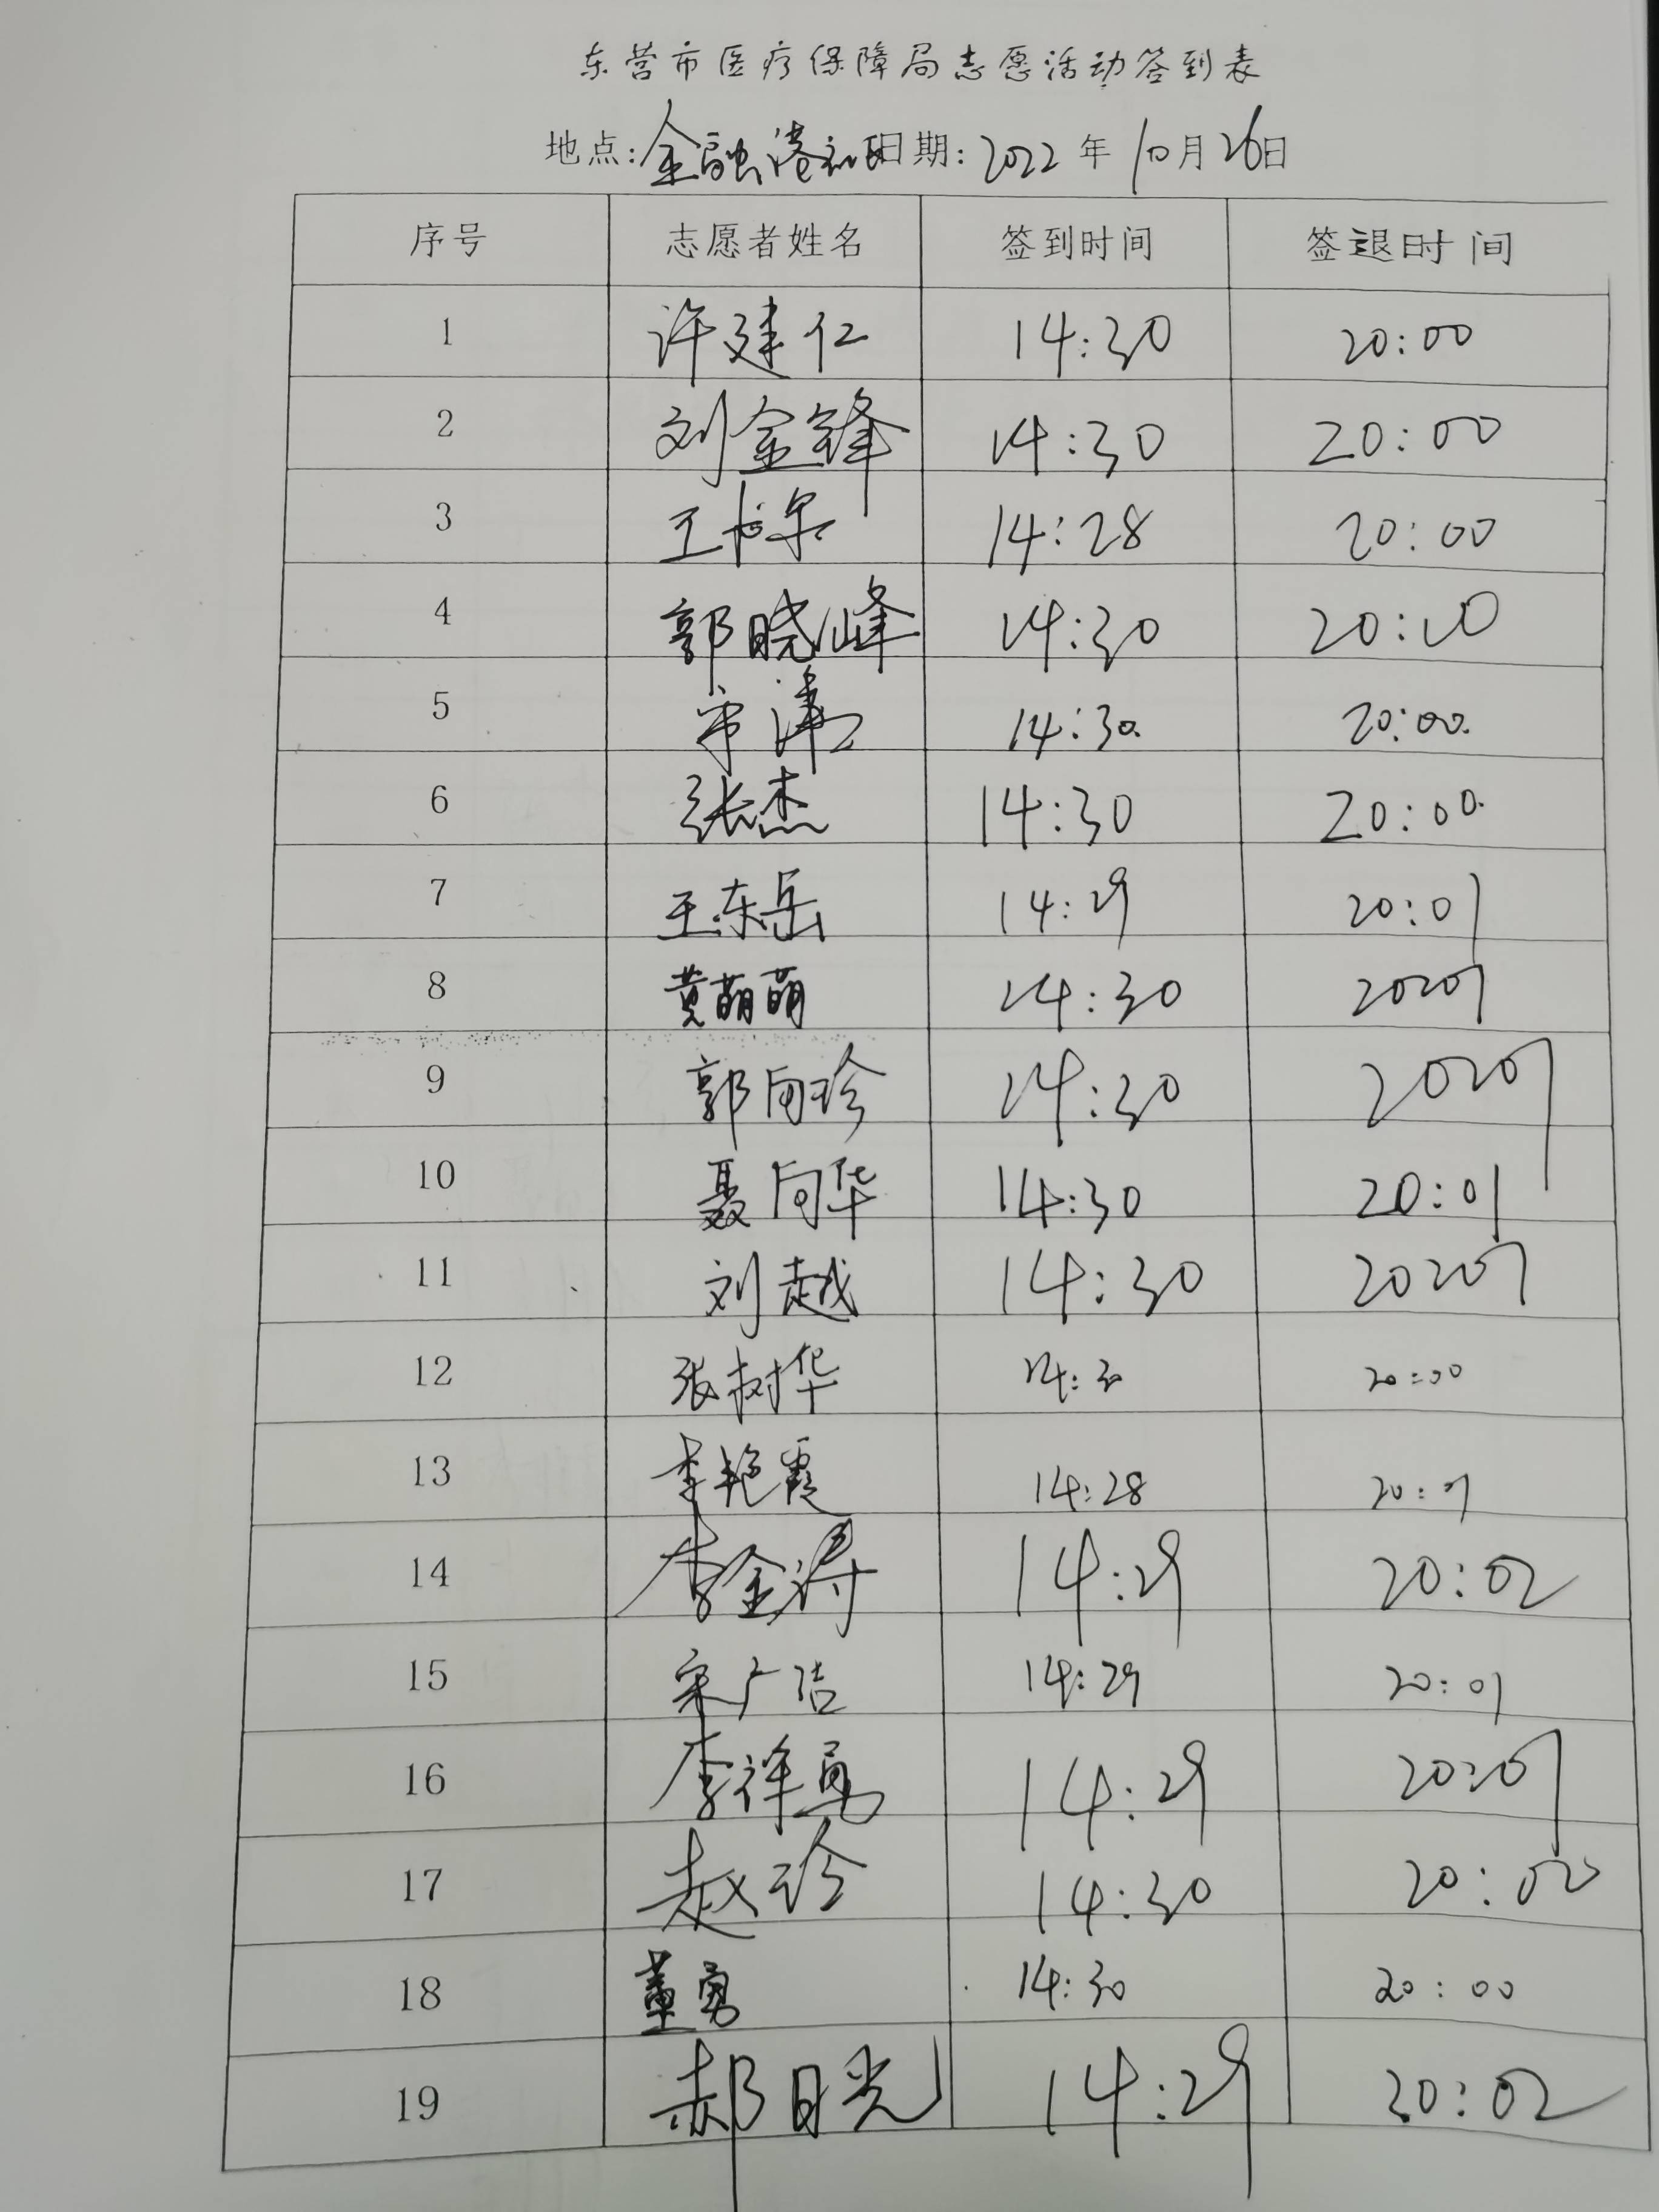 东营市医疗保障局志愿活动签到表
地点:金融港 日期:2022年10月26日
序号 志愿者姓名 签到时间 签退时间
1 许建仁 14:30 20:00
2 刘金锋 14:30 20:00
3 王 14:28 20:00
4 郭晓峰 14:30 20:00
5 14:30 20:00
6 张杰 14:30 20:00
7 王东岳 14:29 20:01
8 黄萌萌 14:30 20:01
9 郭向珍 14:30 20:01
10 聂向华 14:30 20:01
11 刘越 14:30 20:01
12 张树华 14:30 20:00
13 李艳霞 14:28 20:01
14 李金涛 14:29 20:02
15 宋广洁 14:29 20:01
16 李祥勇 14:29 20:01
17 赵珍 14:30 20:02
18 董勇 14:30 20:00
19 郝日光 14:29 20:02